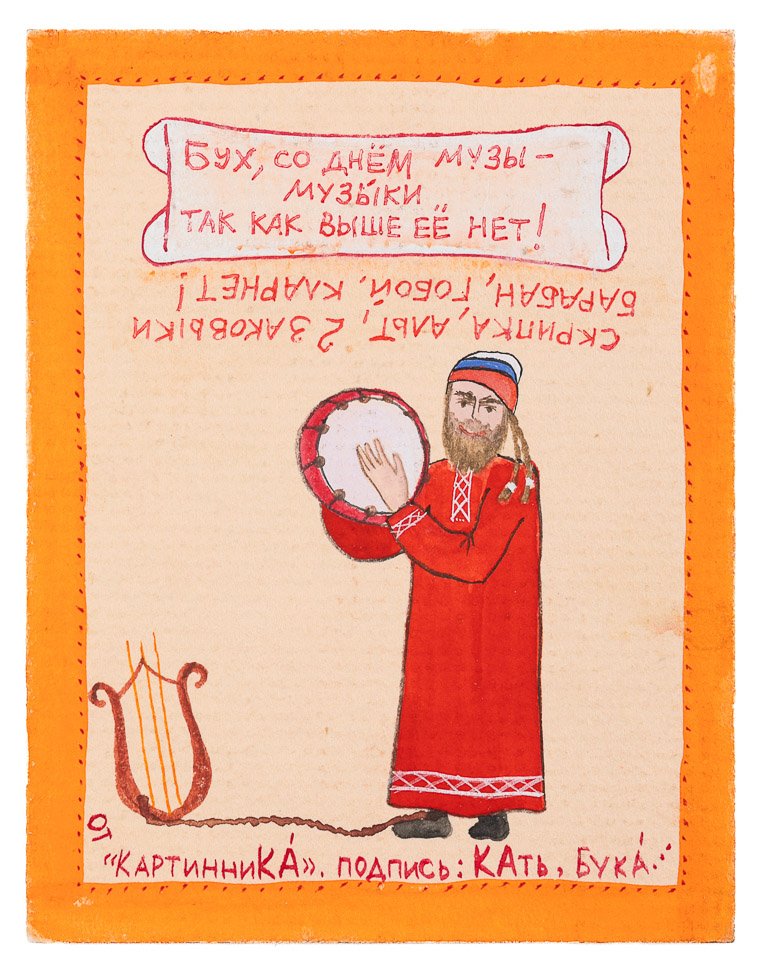 БУХ, СО ДНЁМ МУЗЫ-
МУЗЫ́КИ
ТАК КАК ВЫШЕ ЕЁ НЕТ!
СКРИПКА, АЛЬТ, 2 ЗАКОВЫКИ
БАРАБАН, ГОБОЙ, КЛАРНЕТ!
"КАРТИННИКА́". ПОДПИСЬ: КАТЬ, БУКА́...